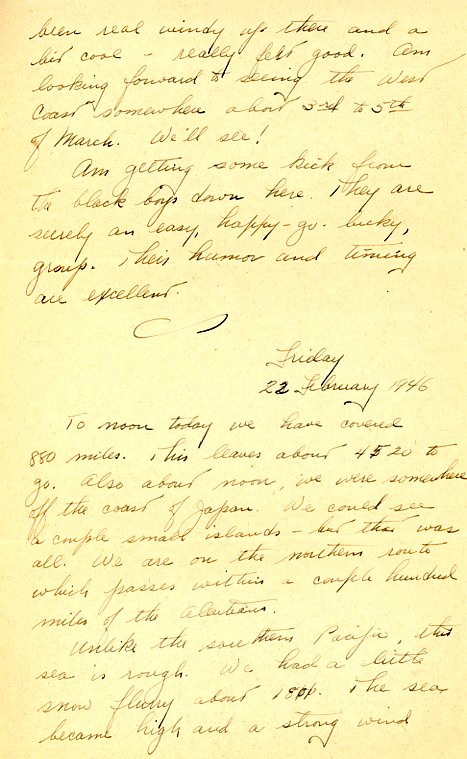 been real windy up there and a
bit cool - really felt good. Am
looking forward to seeing the West
Coast somewhere about 3rd to 5th
of March. We'll see!
Am getting some kick from
the black boys down here. They are
surely an easy, happy-go-lucky,
group. Their humor and timing
are excellent.
Friday
22 February 1946
To noon today we have covered
880 miles. This leaves about 4520 to
go. Also about noon, we were somewhere
off the coast of Japan. We could see
a couple small islands - but that was
all. We are on the northern route
which passes within a couple hundred
miles of the Aleutians.
Unlike the southern Pacific, this
sea is rough. We had a little
snow flurry about 1800. The sea
became high and a strong wind